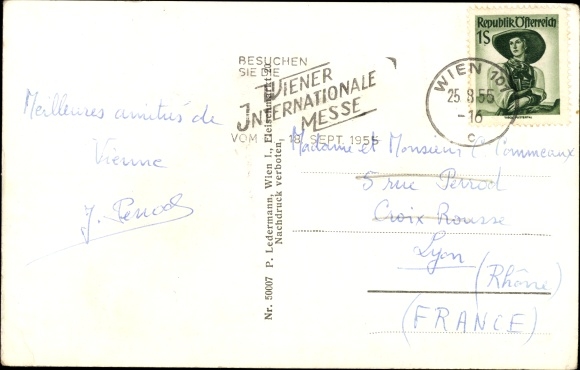 BESUCHEN
SIE DIE
WIENER
INTERNATIONALE
MESSE
VOM - 18. SEPT. 1955
Republik Österreich
1S
WIEN 101
25.8.55
-16
c
Meilleures amitiés de
Vienne
Nr. 50007 P. Ledermann, Wien I., Fleischmarkt
Nachdruck verboten.
Madame et Monsieur Commeaux
5 rue Perrod
Croix Rousse
Lyon
(Rhône)
(FRANCE)